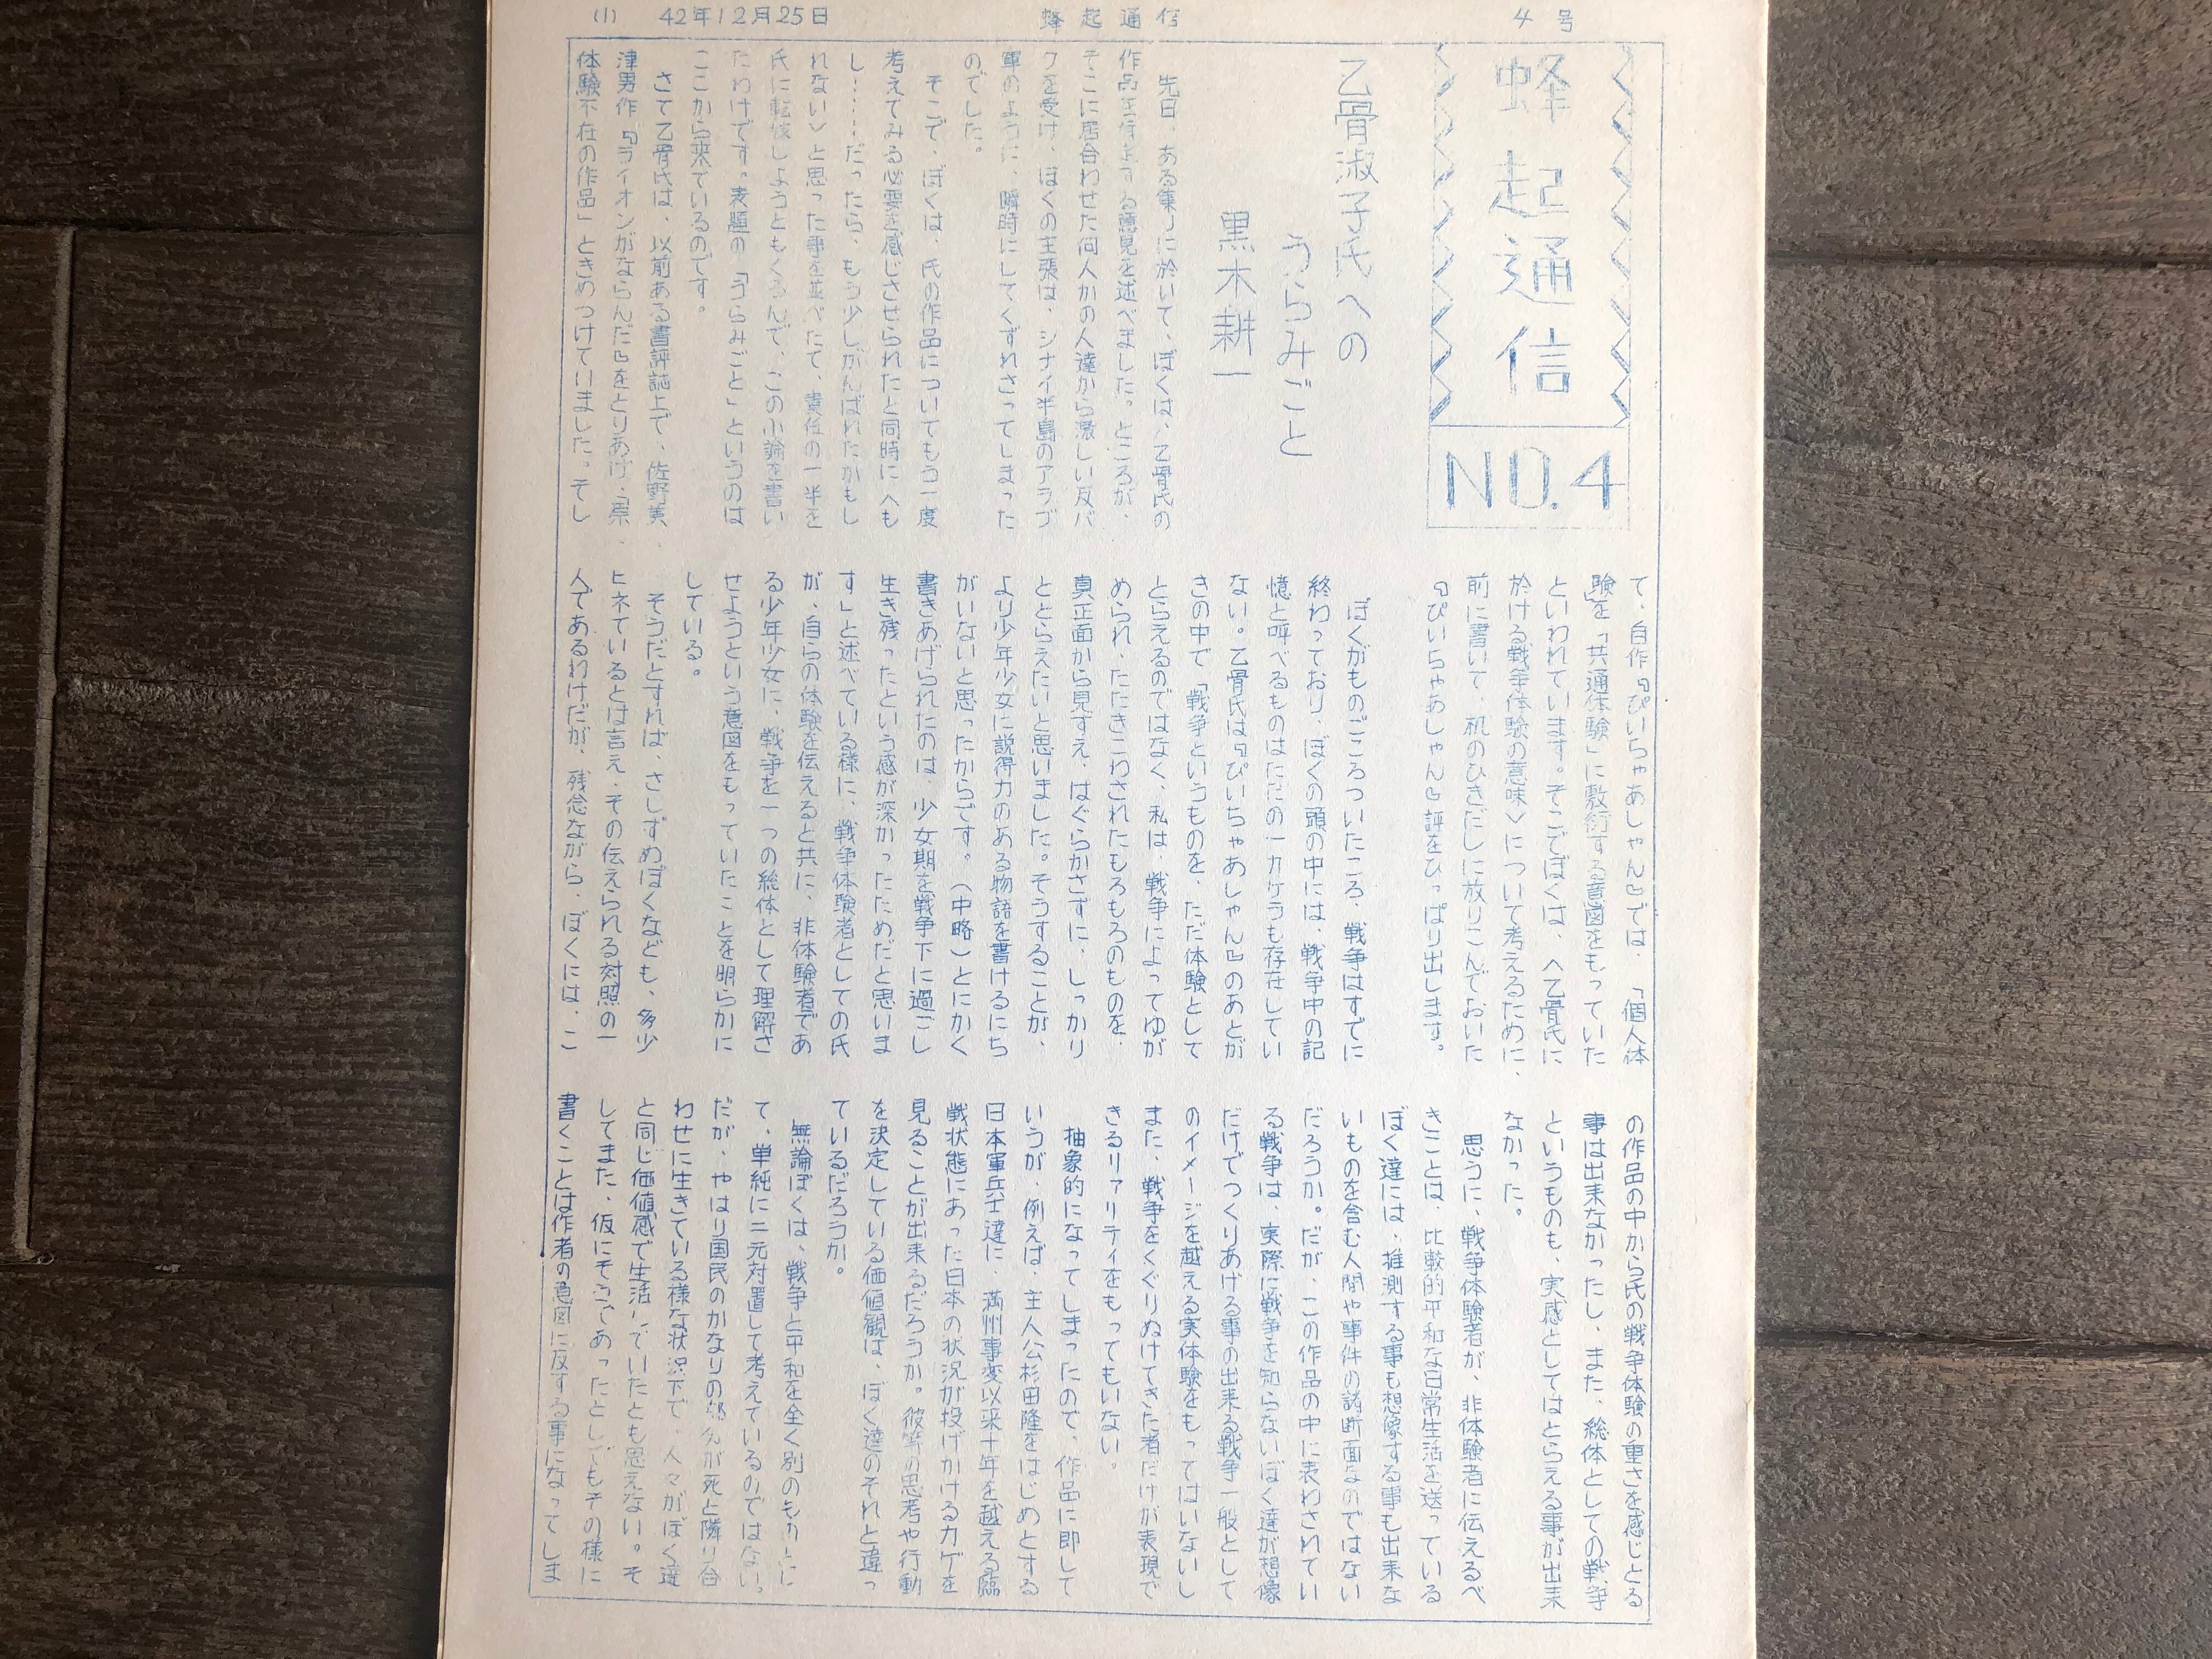 4号
蜂起通信
42年12月25日
(1)
蜂起通信
NO.4
乙骨淑子氏への
うらみごと
黒木耕一
先日、ある集りに於いて、ぼくは、乙骨氏の
作品を する意見を述べました。ところが、
そこに居合わせた何人かの人達から激しい反バ
クを受け、ぼくの主張は、シナイ半島のアラブ
軍のように、瞬時にしてくずれさってしまった
のでした。
そこで、ぼくは、氏の作品についてもう一度
考えてみる必要を感じさせられたと同時に〈も
し……だったら、もう少しがんばれたかもし
れない〉と思った事を並べたて、責任の一半を
氏に転嫁しようともくろんで、この小論を書い
たわけです。表題の「うらみごと」というのは
ここから来ているのです。
さて乙骨氏は、以前ある書評誌上で、佐野美
津男作『ライオンがならんだ』をとりあげ、「原
体験不在の作品」ときめつけていました。そし
て、自作『ぴいちゃあしゃん』では、「個人体
験を「共通体験」に敷衍する意図をもっていた
といわれています。そこでぼくは、〈乙骨氏に
於ける戦争体験の意味〉について考えるために、
前に書いて、机のひきだしに放りこんでおいた
『ぴいちゃあしゃん』評をひっぱり出します。
ぼくがものごころついたころ、戦争はすでに
終わっており、ぼくの頭の中には、戦争中の記
憶と呼べるものはただの一カケラも存在してい
ない。乙骨氏は『ぴいちゃあしゃん』のあとが
きの中で「戦争というものを、ただ体験として
とらえるのではなく、私は、戦争によってゆが
められ、たたきこわされたもろもろのものを、
真正面から見すえ、はぐらかさずに、しっかり
ととらえたいと思いました。そうすることが、
より少年少女に説得力のある物語を書けるにち
がいないと思ったからです。（中略）とにかく
書きあげられたのは、少女期を戦争下に過ごし
生き残ったという感が深かったためだと思いま
す」と述べている様に、戦争体験者としての氏
が、自らの体験を伝えると共に、非体験者であ
る少年少女に、戦争を一つの総体として理解さ
せようという意図をもっていたことを明らかに
している。
そうだとすれば、さしずめぼくなども、多少
ヒネているとは言え、その伝えられる対照の一
人であるわけだが、残念ながら、ぼくには、こ
の作品の中から氏の戦争体験の重さを感じとる
事は出来なかったし、また、総体としての戦争
というものも、実感としてはとらえる事が出来
なかった。
思うに、戦争体験者が、非体験者に伝えるべ
きことは、比較的平和な日常生活を送っている
ぼく達には、推測する事も想像する事も出来な
いものを含む人間や事件の諸断面なのではない
だろうか。だが、この作品の中に表わされてい
る戦争は、実際に戦争を知らないぼく達が想像
だけでつくりあげる事の出来る戦争一般として
のイメージを越える実体験をもってはいないし
また、戦争をくぐりぬけてきた者だけが表現で
きるリアリティをもってもいない。
抽象的になってしまったので、作品に即して
いうが、例えば、主人公杉田隆をはじめとする
日本軍兵士達に、満州事変以来十年を越える臨
戦状態にあった日本の状況が投げかけるカゲを
見ることが出来るだろうか。彼等の思考や行動
を決定している価値観は、ぼく達のそれと違っ
ているだろうか。
無論ぼくは、戦争と平和を全く別のものとし
て、単純に二元対置して考えているのではない。
だが、やはり国民のかなりの部分が死と隣り合
わせに生きている様な状況下で、人々がぼく達
と同じ価値感で生活していたとも思えない。そ
してまた、仮にそうであったとしてもその様に
書くことは作者の意図に反する事になってしま